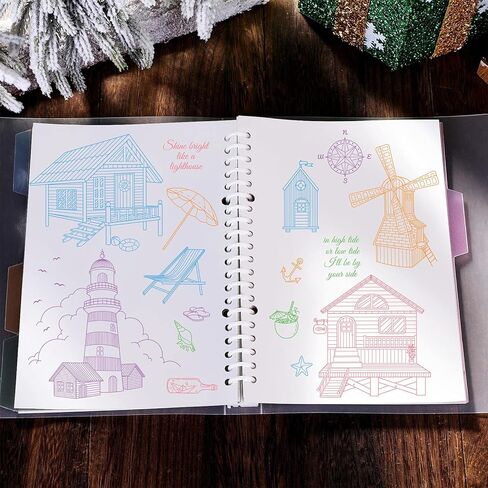 Shine bright
like a
lighthouse
N
W
E
S
in high tide
or low tide
I'll be by
your side